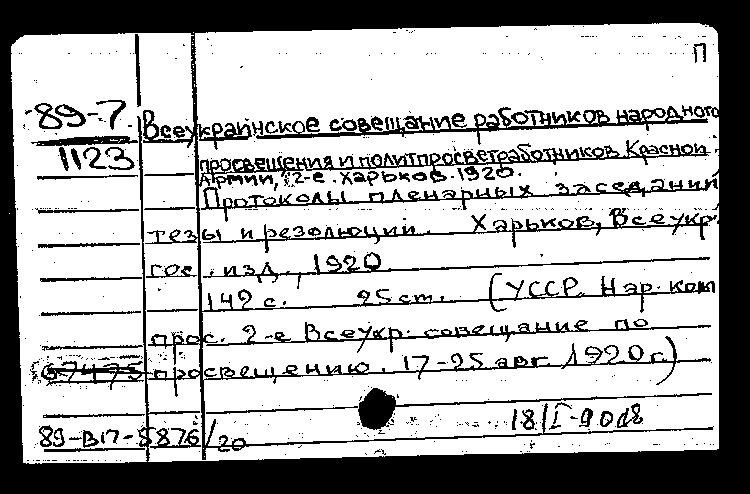 П
89-7 Всеукраинское совещание работников народного
1123 просвещения и политпросветработников Красной
Армии, 2-е. Харьков. 1920.
Протоколы пленарных заседаний
тезы и резолюции. Харьков, Всеукр.
гос. изд., 1920
142 с. 25 cm. (УССР. Нар. ком
прос. 2-е Всеукр. совещание по
67473 просвещению. 17-25 авг. 1920 г.)
89-В17-5876/20